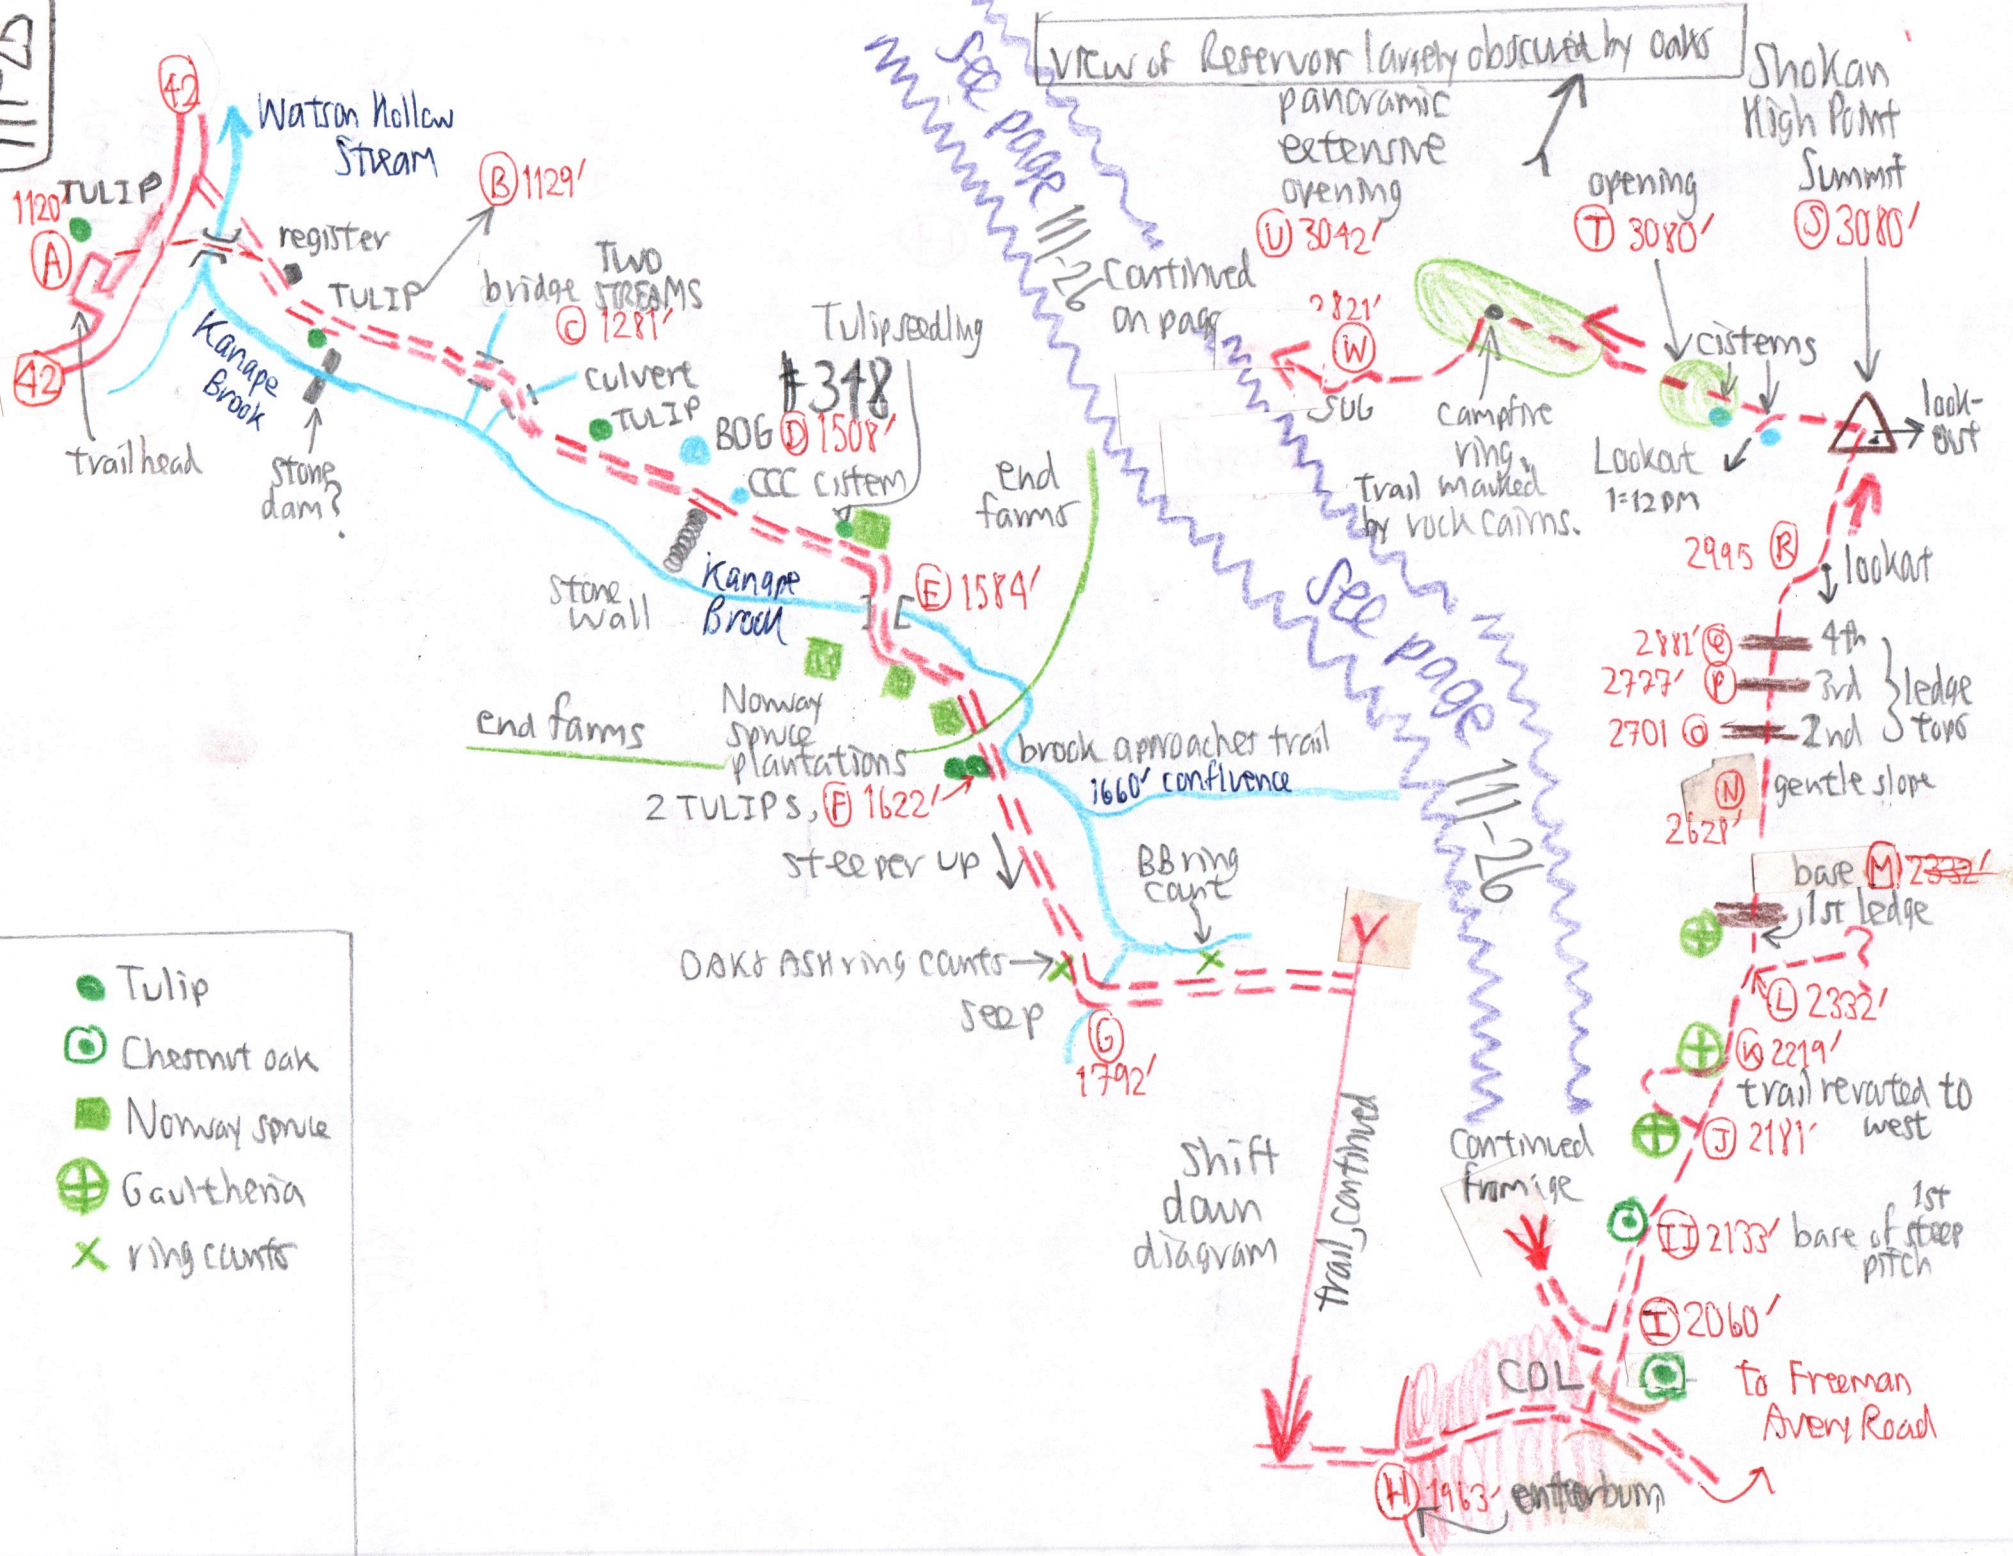 III-25
42
Watson Hollow
Stream
TULIP
1120'
A
B 1129'
register
TULIP
bridge
TWO
STREAMS
C 1281'
Kanape
Brook
42
trailhead
stone
dam?
culvert
TULIP
Tulip seedling
#348
BOG
D 1508'
CCC cistern
end
farms
stone
wall
Kanape
Brook
E 1584'
end farms
Norway
spruce
plantations
2 TULIPS, F 1622'
brook approaches trail
1660' confluence
steeper up
BB ring
count
OAK & ASH ring counts
seep
G
1792'
shift
down
diagram
trail continued
See page
III-26
See page
III-26
View of Reservoir largely obscured by oaks
panoramic
extensive
opening
U 3042'
opening
T 3080'
Shokan
High Point
Summit
S 3080'
Continued
on page
2821'
W
SUG
campfire
ring.
Trail marked
by rock cairns.
cisterns
Lookout
1:12 PM
look-
out
2995 R
lookout
2881' Q 4th
2777' P 3rd
2701 O 2nd
ledge
tops
N
2628'
gentle slope
base M 2332'
1st ledge
?
L 2332'
K 2219'
trail rerouted to
west
J 2181'
II 2133' base of 1st
steep
pitch
Continued
from
I 2060'
COL
to Freeman
Avery Road
H 1963' enter burn
Tulip
Chestnut oak
Norway spruce
Gaultheria
ring counts